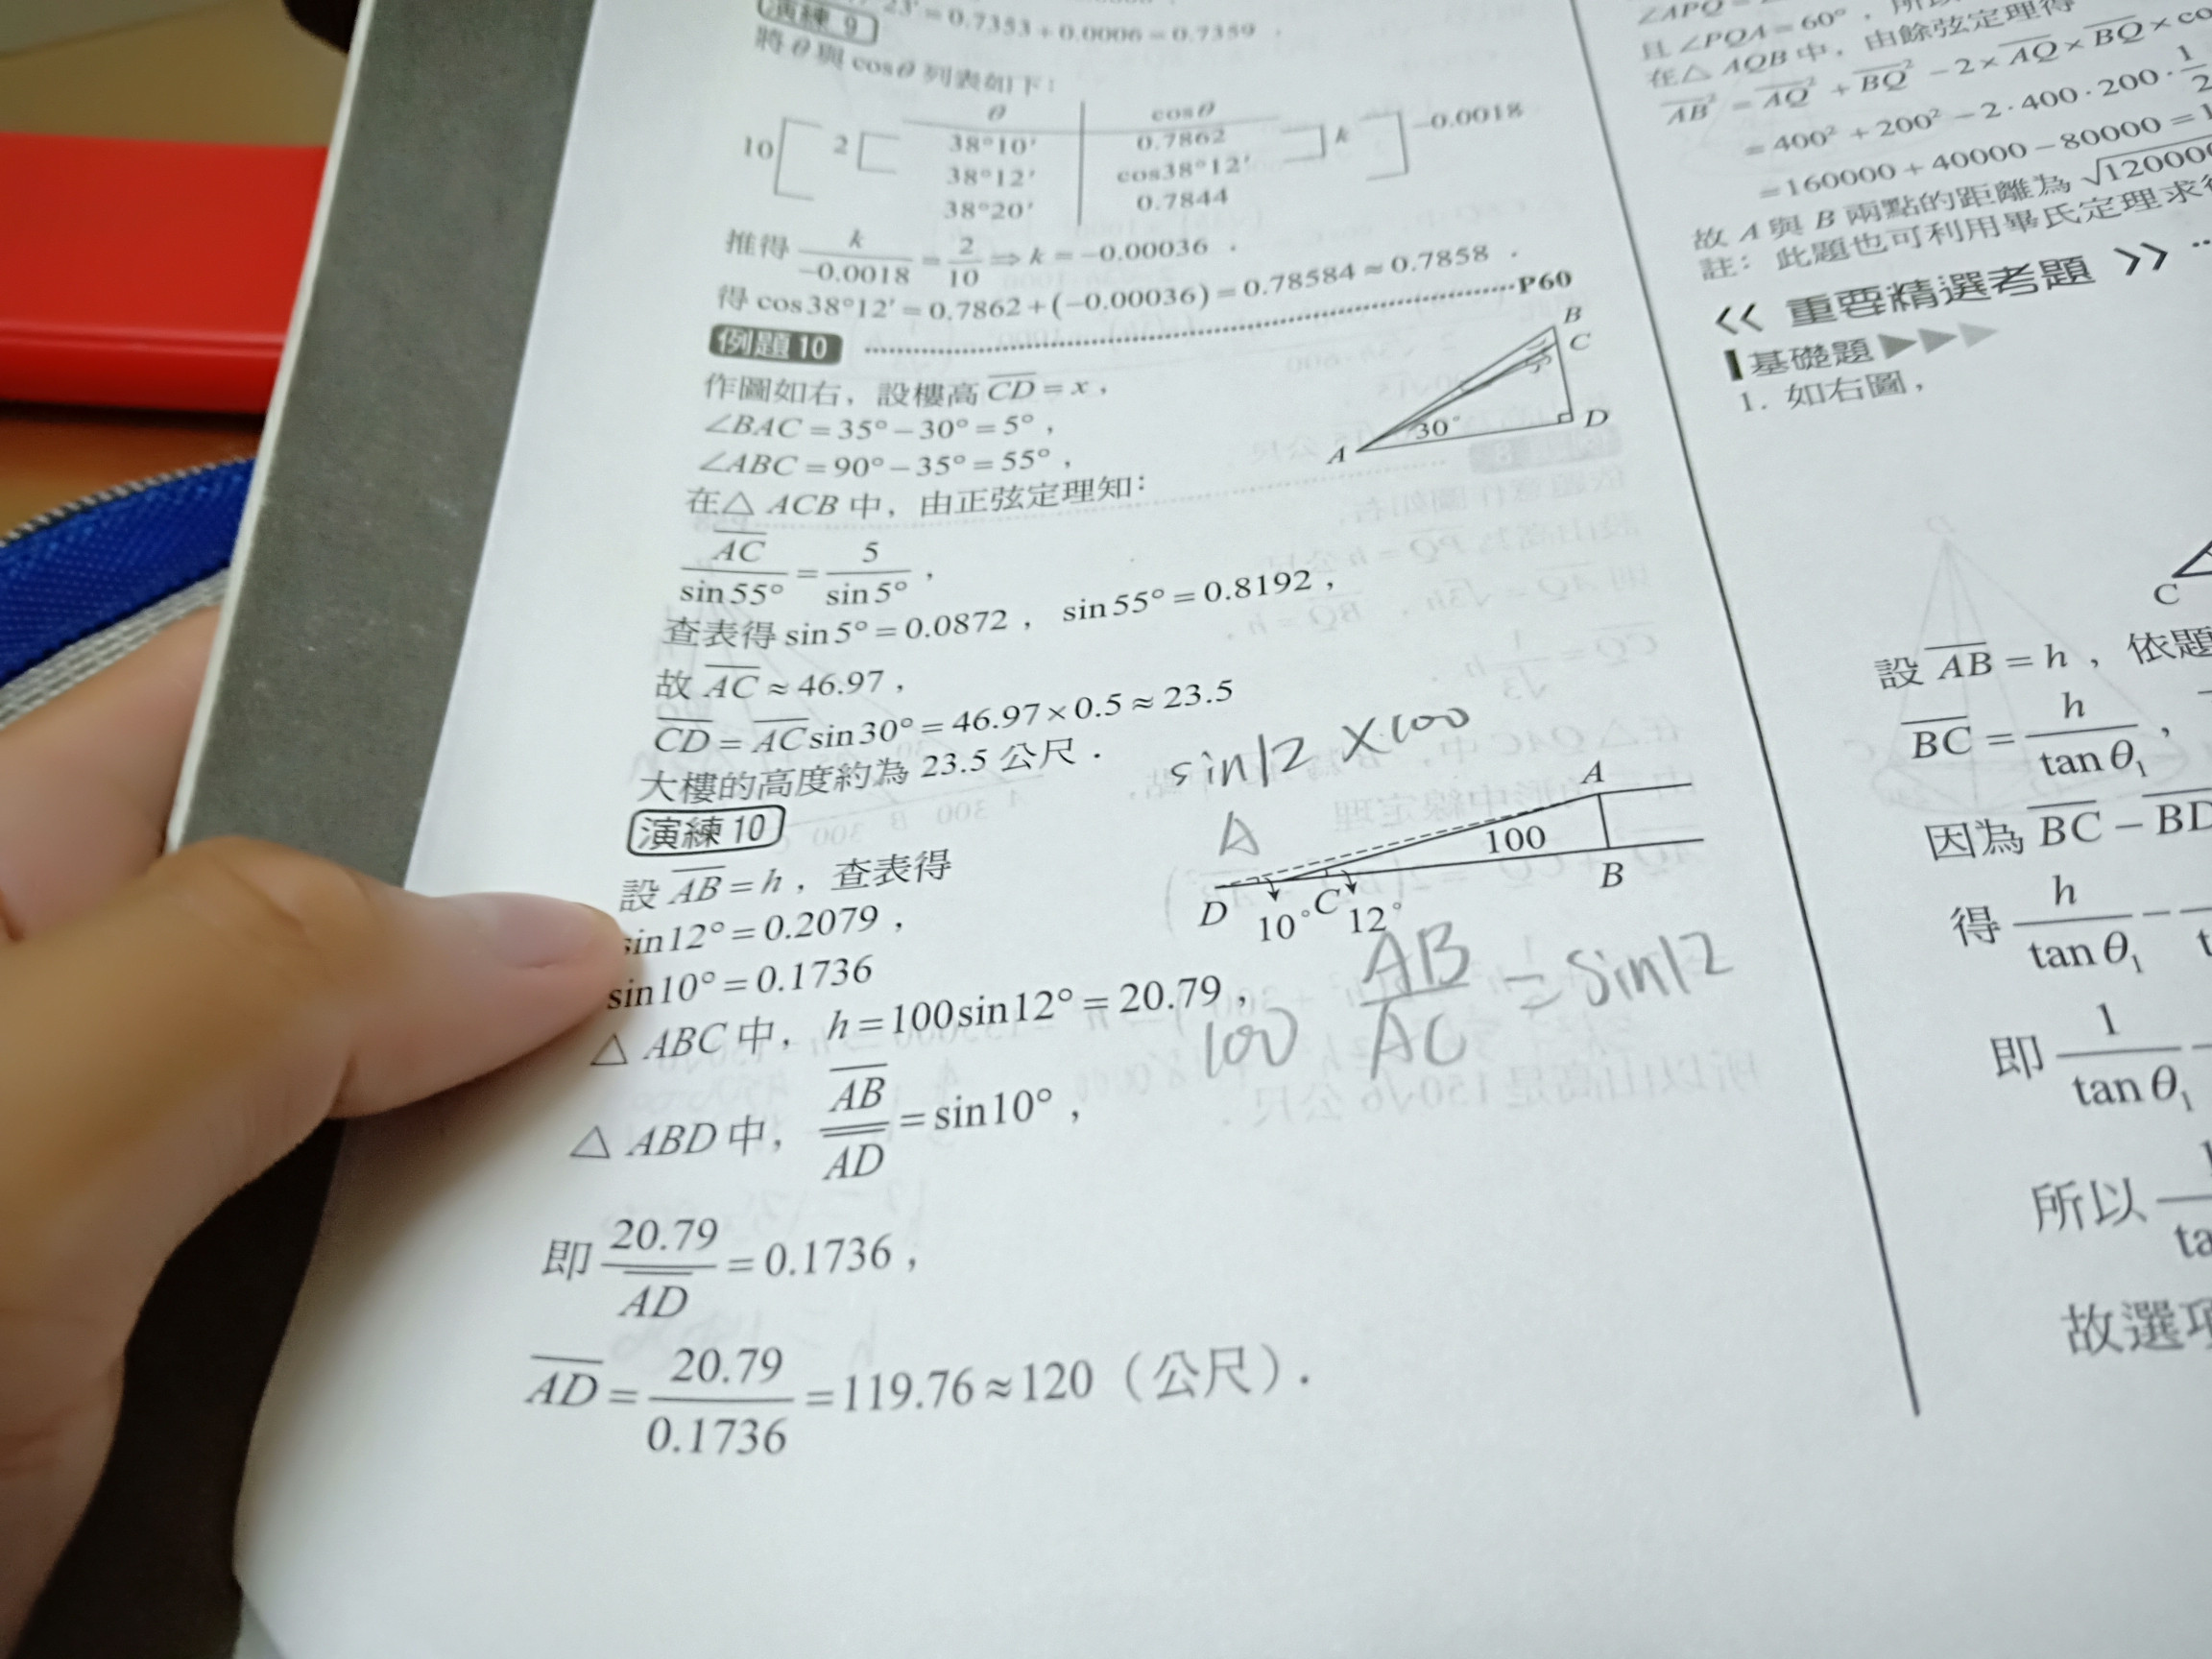 23′=0.7353+0.0006=0.7359，
演練 9
將 θ 與 cosθ 列表如下：
θ cosθ
10 2 38°10′ 0.7862 k −0.0018
38°12′ cos38°12′
38°20′ 0.7844
推得 k/−0.0018 = 2/10 ⇒ k = −0.00036．
得 cos38°12′ = 0.7862+(−0.00036) = 0.78584 ≈ 0.7858．
例題 10 P60
作圖如右，設樓高 \overline{CD} = x，
∠BAC = 35°−30° = 5°，
∠ABC = 90°−35° = 55°，
在△ ACB 中，由正弦定理知：
\overline{AC}/sin55° = 5/sin5°，
查表得 sin5° = 0.0872，sin55° = 0.8192，
故 \overline{AC} ≈ 46.97，
\overline{CD} = \overline{AC}sin30° = 46.97×0.5 ≈ 23.5
大樓的高度約為 23.5 公尺．
B
C
D
A
30°
sin12 ×100
演練 10
設 \overline{AB} = h，查表得
sin12° = 0.2079，
sin10° = 0.1736
△ ABC 中，h = 100sin12° = 20.79，
△ ABD 中，\overline{AB}/\overline{AD} = sin10°，
即 20.79/\overline{AD} = 0.1736，
\overline{AD} = 20.79/0.1736 = 119.76 ≈ 120（公尺）．
A
A
100
B
D
10°
C
12°
AB/AC = sin12
100
且 ∠PQA = 60°，
在△ AQB 中，由餘弦定理得
\overline{AB}² = \overline{AQ}² + \overline{BQ}² − 2×\overline{AQ}×\overline{BQ}×co
= 400² + 200² − 2·400·200·1/2
= 160000 + 40000 − 80000 = 1
故 A 與 B 兩點的距離為 √12000
註：此題也可利用畢氏定理求
<< 重要精選考題 >>
基礎題
1. 如右圖，
C
設 \overline{AB} = h，依題
\overline{BC} = h/tanθ₁，
因為 \overline{BC} − \overline{BD}
得 h/tanθ₁ −
即 1/tanθ₁ −
所以
故選項